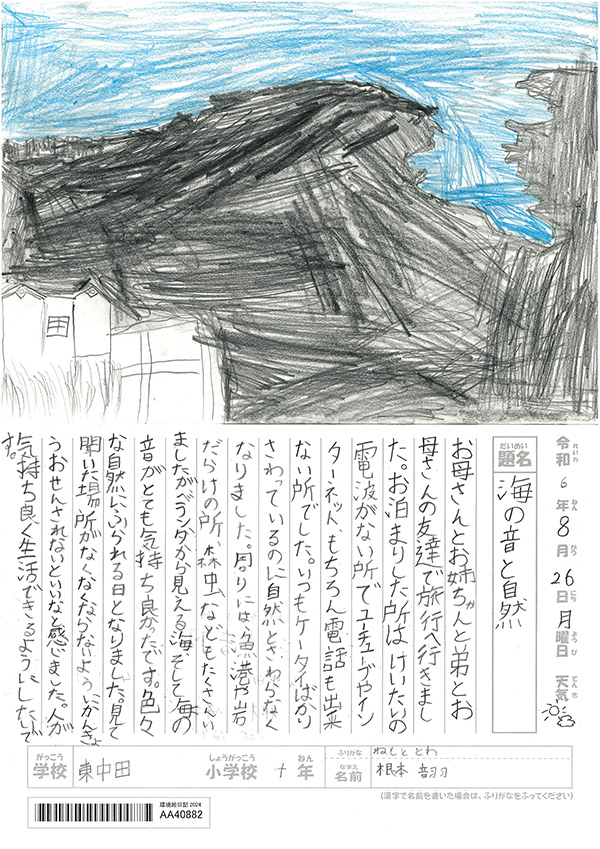 令和 6 年 8 月 26 日 月 曜日 天気
れいわ ねん がつ にち ようび てんき
だいめい
題名 海の音と自然
お母さんとお姉ちゃんと弟とお
母さんの友達で旅行へ行きまし
た。お泊まりした所は、けいたいの
電波がない所でユーチューブやイン
ターネット、もちろん電話も出来
ない所でした。いつもケータイばかり
さわっているのに自然とさわらなく
なりました。周りには漁港や岩
だらけの所、森、虫などもたくさんい
ましたがベランダから見える海、そして海の
音がとても気持ち良かたです。色々
な自然にふれられる日となりました。見て
聞いた場所がなくならないようにかんきょ
うおせんされないといいなと感じました。人が
気持ち良く生活できるようにしたいで
す。
がっこう しょうがっこう ねん ふりがな ねもと とわ
学校 東中田 小学校 年 なまえ 名前 根本 音羽
(漢字で名前を書いた場合は、ふりがなをふってください)
環境絵日記 2024
AA40882